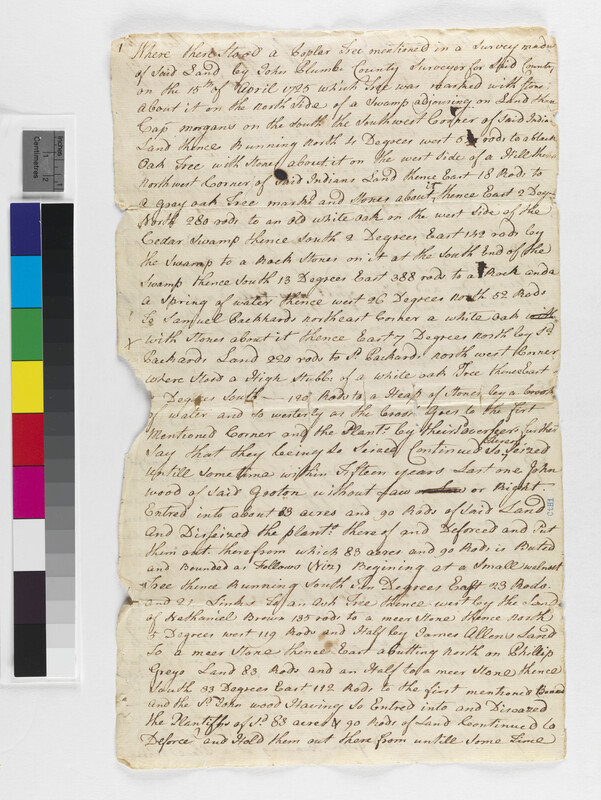 1
Where there Stood a Popler Tree mentioned in a Survey made
of Said Land by John Plumb County Surveyor for Said County
on the 15th of April 1725 which Tree was marked with Stones
About it on the North Side of a Swamp adjoyning on Land then
Cap morgans on the South the Southwest Corner of Said Indian
Land thence Running North 4 Degrees west rods to a black
Oak Tree with Stones about it on the west Side of a Hill the
Northwest Corner of Said Indians Land thence East 18 Rods to
a gray oak Tree markt and Stones about it thence East 2 Degrs
North 280 rods to an old white oak on the west Side of the
Cedar Swamp thence South 2 Degrees East 142 rods by
the Swamp to a Rock Stones on it at the South End of the
Swamp thence South 13 Degrees East 388 rods to a Rock and a
a Spring of water thence west 26 Degrees North 52 Rods
to Samuel Packhards northeast Corner a white oak with
with Stones about it thence East 7 Degrees North by Sd
Packards Land 220 rods to Sd Packards north west Corner
where Stood a High Stubb of a white oak Tree thence East
Degrees South 120 Rods to a Heap of Stones by a brook
of water and So westerly as the Goes to the first
Mentioned Corner and the Plants by their overseers further
Say that they being So Seized Continued So Seized
Untill Some time within Fifteen years Last one John
wood of Said Groton without Law or Right
Entred into about 83 acres and 90 Rods of Said Land
And Disseized the plants thereof and Deforced and Put
them out therefrom which 83 acres and 90 Rods is Buted
and Bounded as Follows (Viz) Begining at a Small walnut
Tree thence Running South Ten Degrees East 23 Rods
and 21 Links to an Ash Tree thence west by the Land
of Nathaniel Brown 135 rods to a meer Stone thence north
Degrees west 119 Rods and Half by James Allens Land
to a meer Stone thence East abutting North on Phillip
Greys Land 83 Rods and an Half to a meer Stone thence
South 33 Degrees East 112 Rods to the first mentioned Bound
and the Sd John wood Having So Entred into and Disseazed
the Plantiffs of Sd 83 acres & 90 Rods of Land Continued to
Deforce and Hold them out there from untill Some Time
Centimetres
Inches